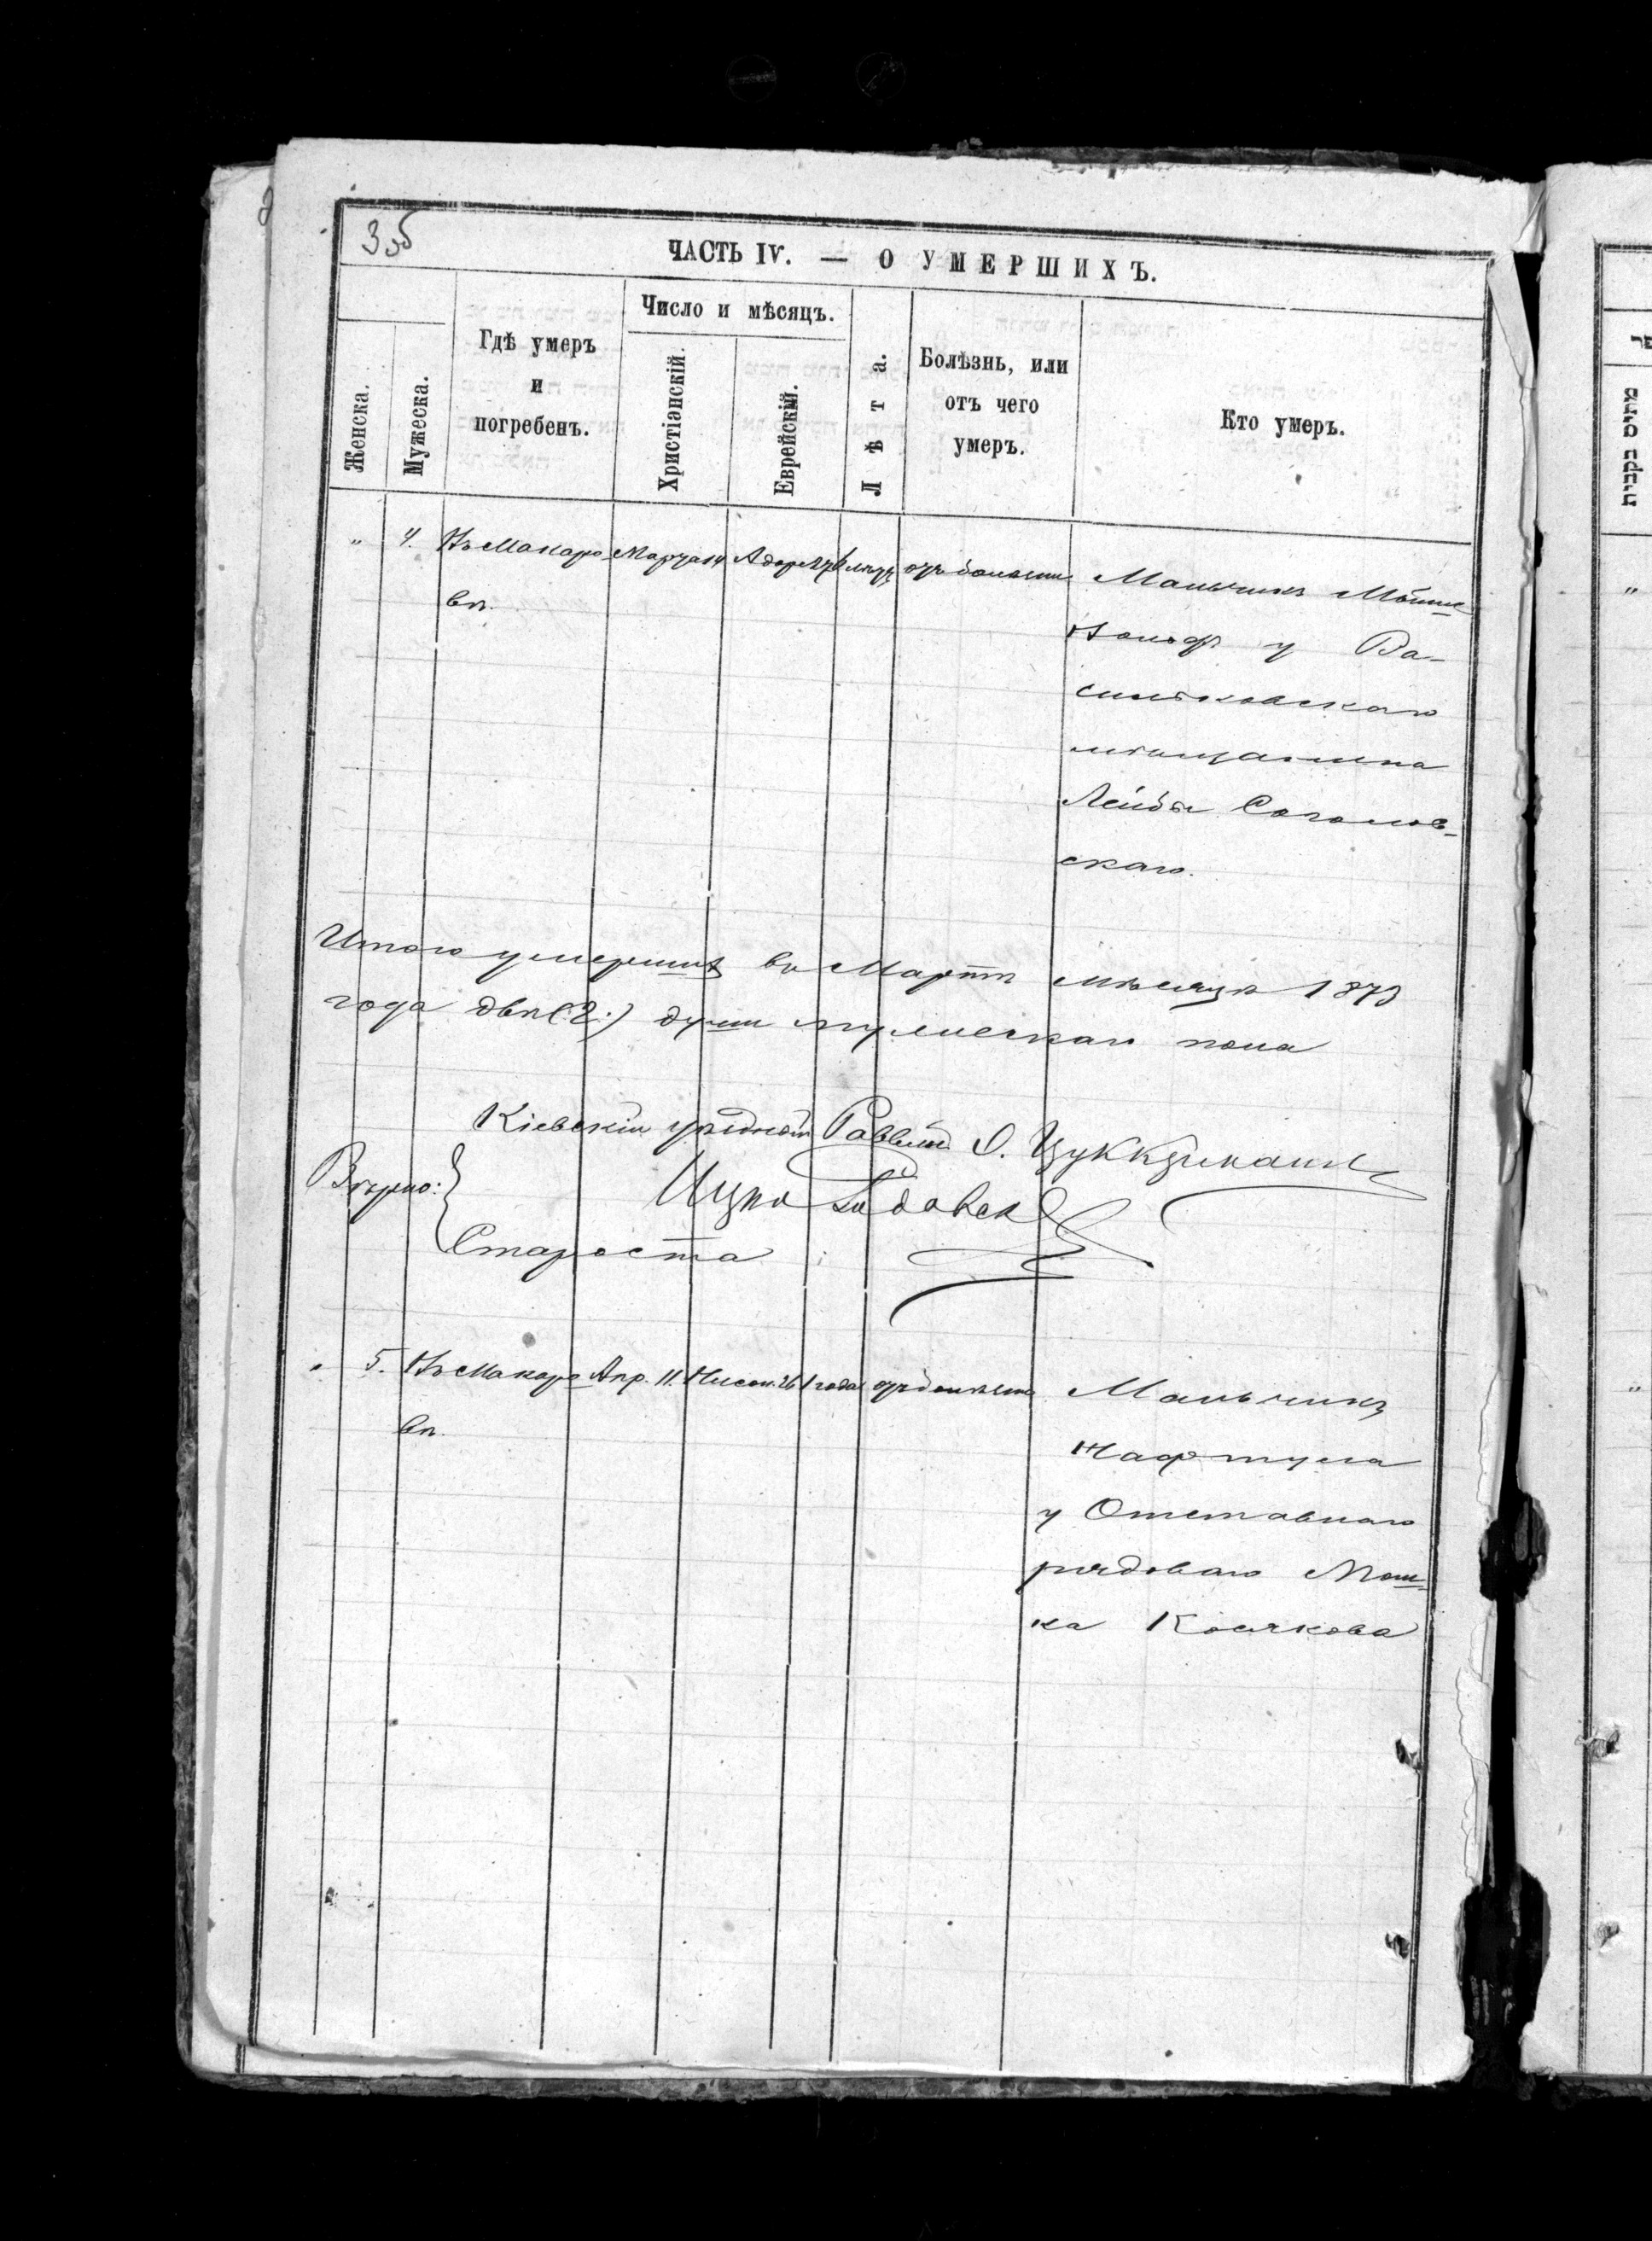 3 об
ЧАСТЬ IV. — О УМЕРШИХЪ.
Женска.
Мужеска.
Гдѣ умеръ
и
погребенъ.
Число и мѣсяцъ.
Христіанскій.
Еврейскій.
Лѣта.
Болѣзнь, или
отъ чего
умеръ.
Кто умеръ.
" 4. Въ Макаро- Марта 14 Адаръ отъ болѣзни Мальчикъ Мойше
вѣ.
Вольфъ у Ва-
сильковскаго
мѣщанина
Лейбы Соголов-
скаго.
Итого умершихъ въ Мартѣ мѣсяцѣ 1873
года двѣ (2.) души мужескаго пола
Кіевскій уѣздный Раввинъ О. Цуккерманъ
Вѣрно:
Ицко
Староста
" 5. Въ Макаро- Апр. 11. Нисон. 26 1 года отъ болѣзни Мальчикъ
вѣ.
Нафтула
у Отставнаго
рядоваго Мош-
ка Косякова